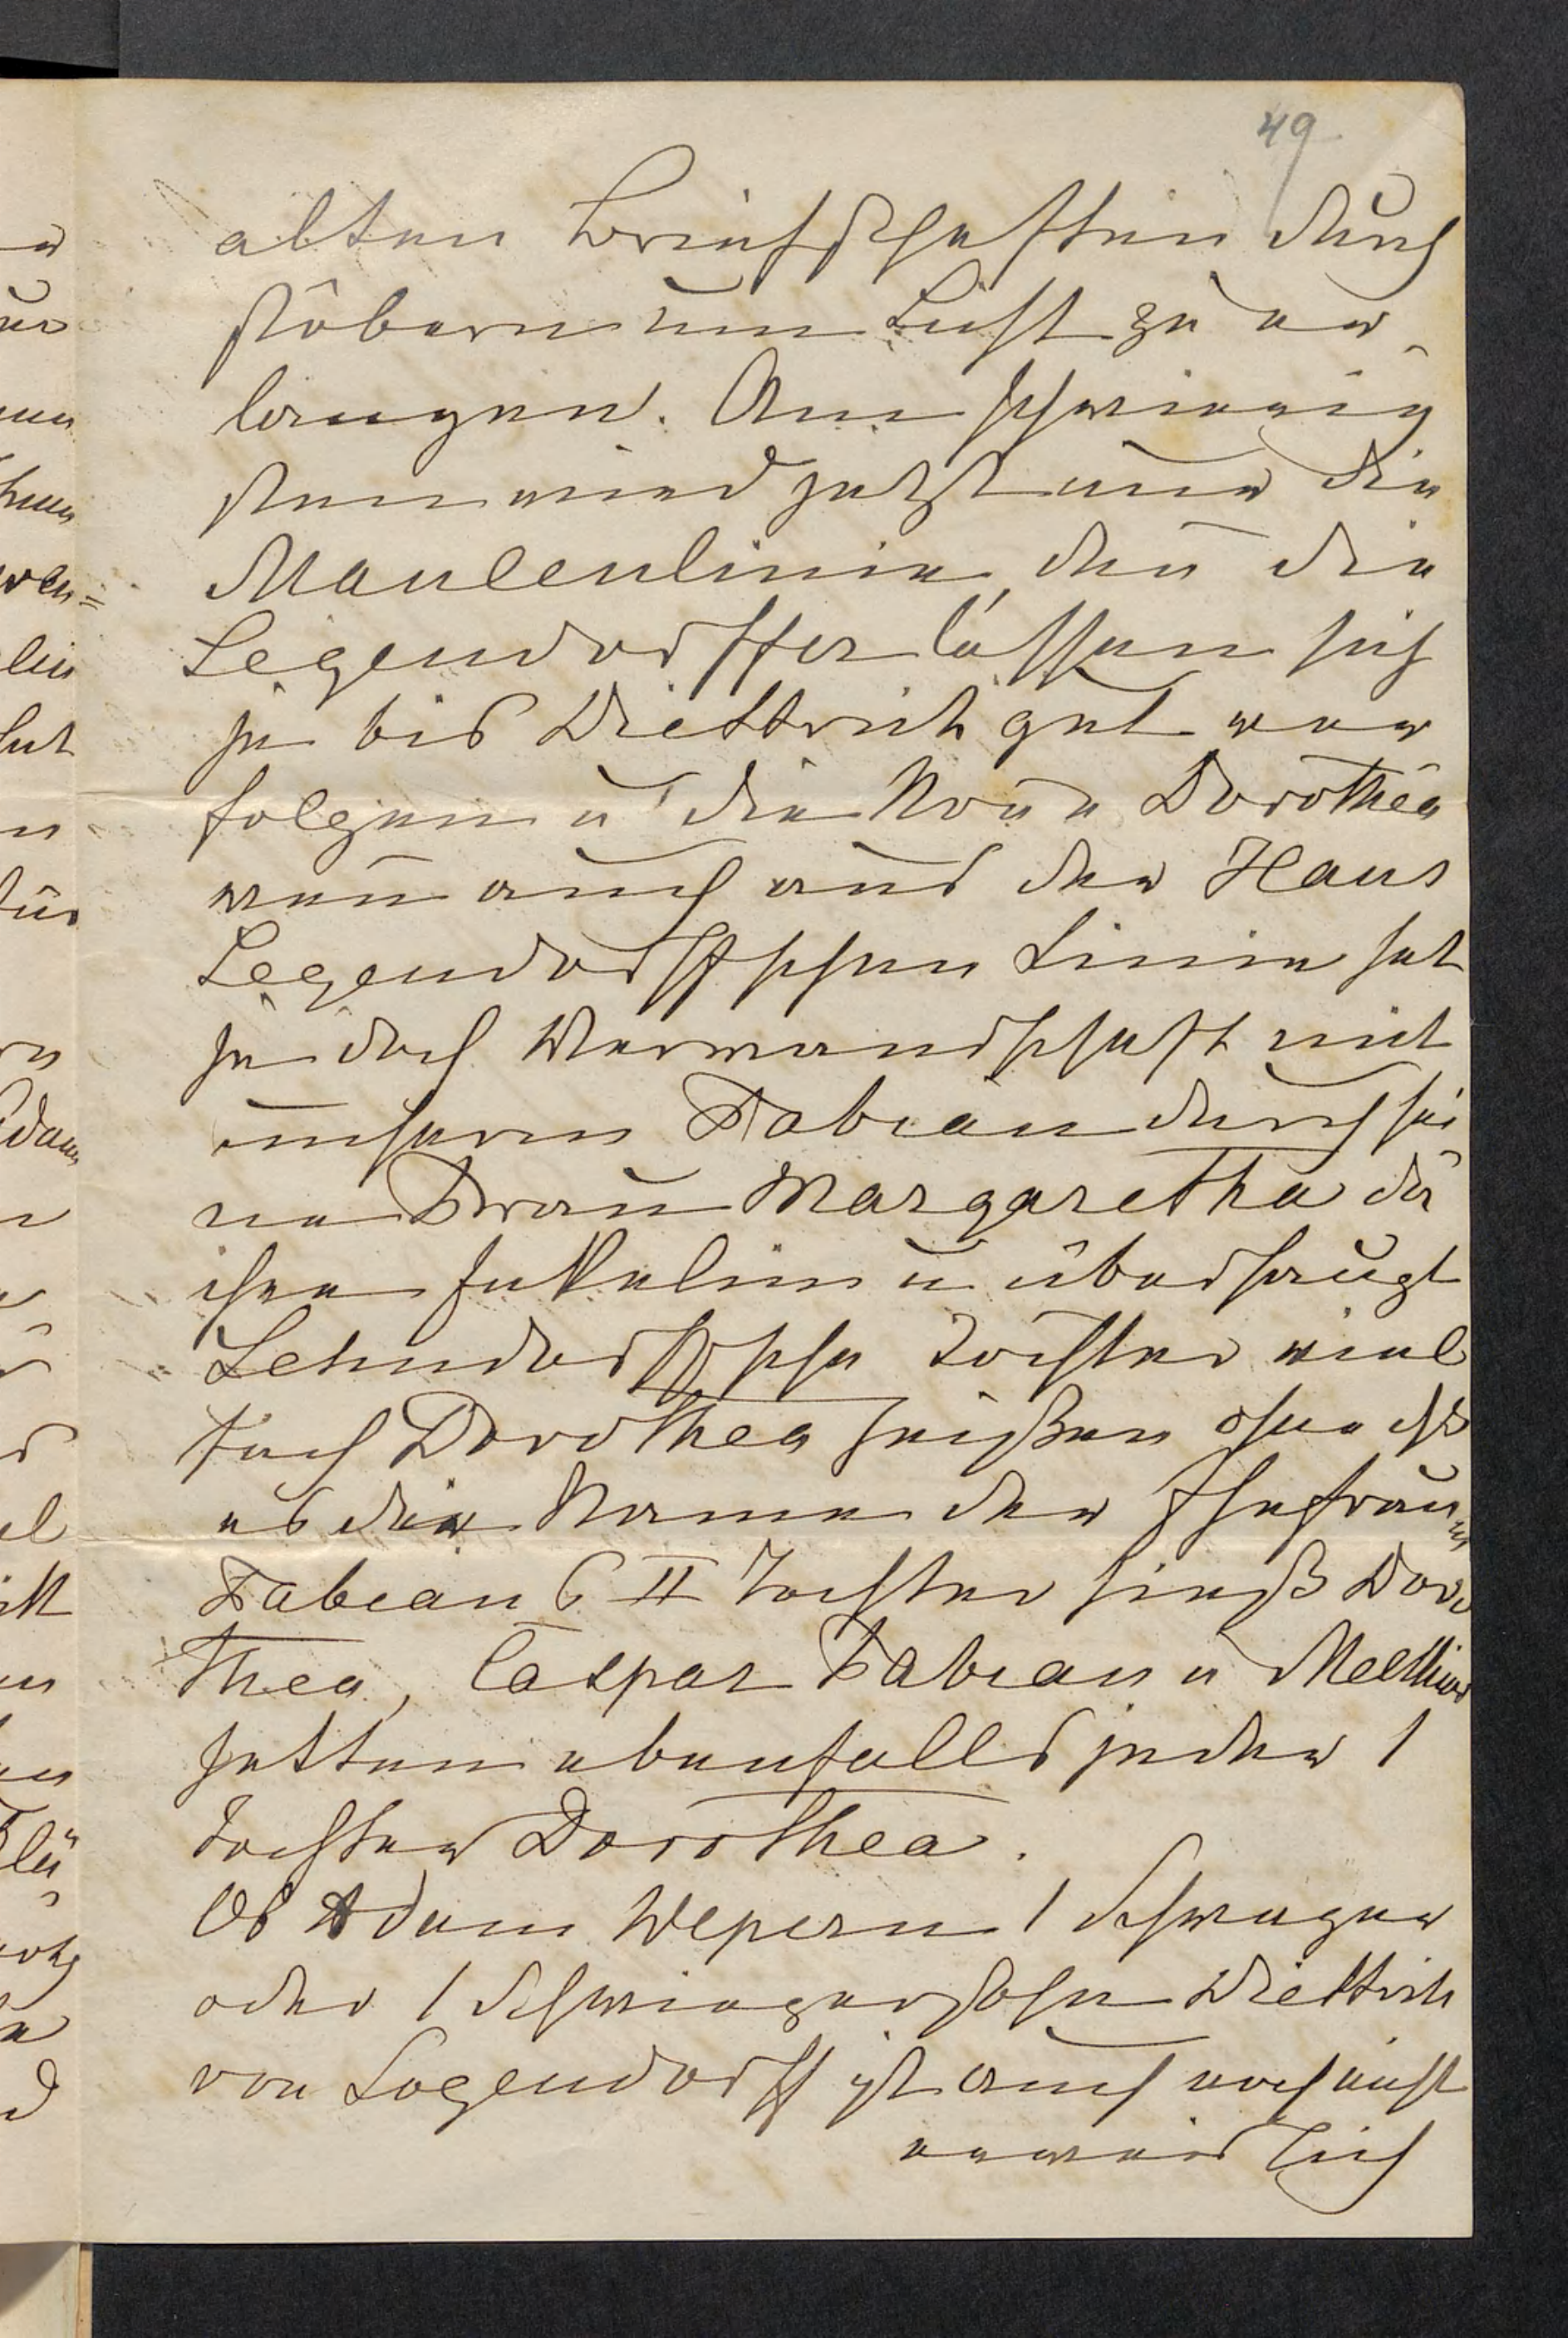 49
alten Briefschaften durch
stöbern um Licht zu er
langen. Am schwierig
sten wird jetzt nur die
Maulenlinie, den̄ die
Legendorffer lassen sich
ja bis Diettrich gut ver
folgen u die Dorothea
wen̄ auch aus der Haus
Legendorffschen Linie hat
ja doch Verwandschaft mit
unserm Fabian durch sei
ne Frau Margaretha de
ihre u überhaupt
Lehndorffsche Töchter viel
fach Dorothea heißen ohne dß
es die Name der Ehefrau
Fabian 6 II Tochter hieß Doro
thea, Caspar Fabian u Melchior
hatten ebenfalls jeder 1
Tochter Dorothea.
Ob Adam Wepern 1 Schwager
oder 1 Schwiegersohn Diettrich
von Legendorff ist auch noch nicht
erweislich